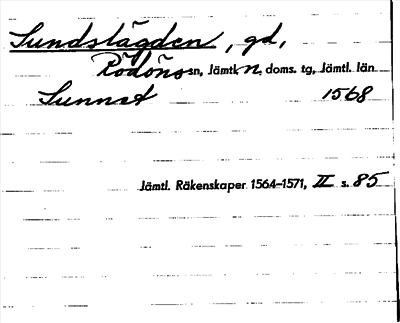 Sundslägden, gd,
Rödöns sn, Jämtl. n. doms. tg, Jämtl. län
Sunnat 1568
Jämtl. Räkenskaper 1564–1571, II s. 85